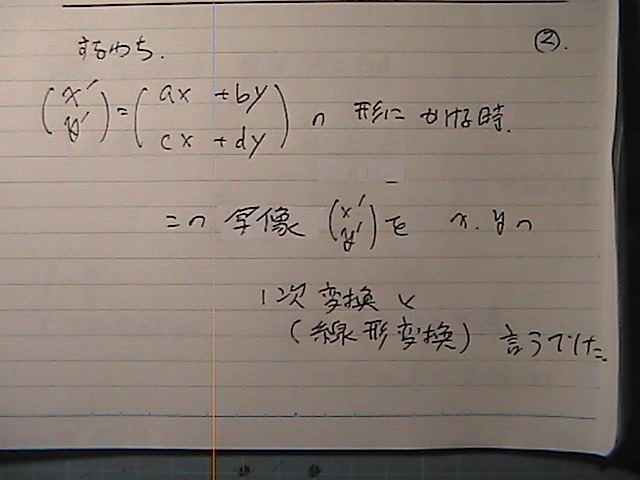 ②.
すなわち.
(x′ y′) = (ax + by cx + dy) の 形に かける時.
この 写像 (x′ y′) を x. y の
1次 変換 と
(線形変換) 言うでけた